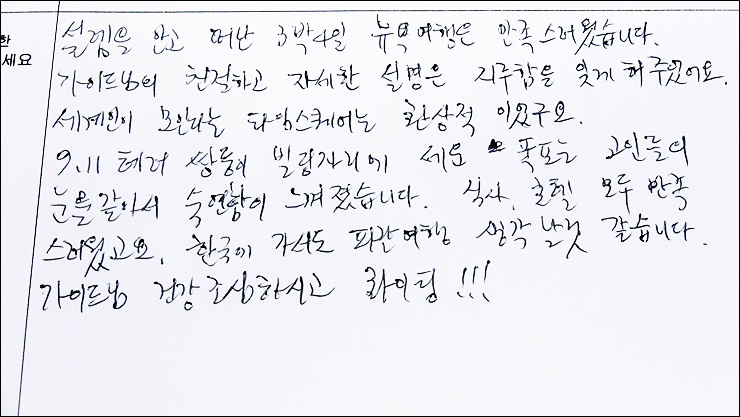 한
세요
설렘을 안고 떠난 3박4일 뉴욕여행은 만족스러웠습니다.
가이드님의 친절하고 자세한 설명은 지루함을 잊게 해주었어요.
세계인이 모인다는 타임스퀘어는 환상적 이었구요.
9.11 테러 쌍둥이 빌딩자리에 세운 폭포는 고인들의
눈물같아서 숙연함이 느껴졌습니다. 식사, 호텔 모두 만족
스러웠고요, 한국에 가서도 여행 생각 날것 같습니다.
가이드님 건강조심하시고 화이팅!!!